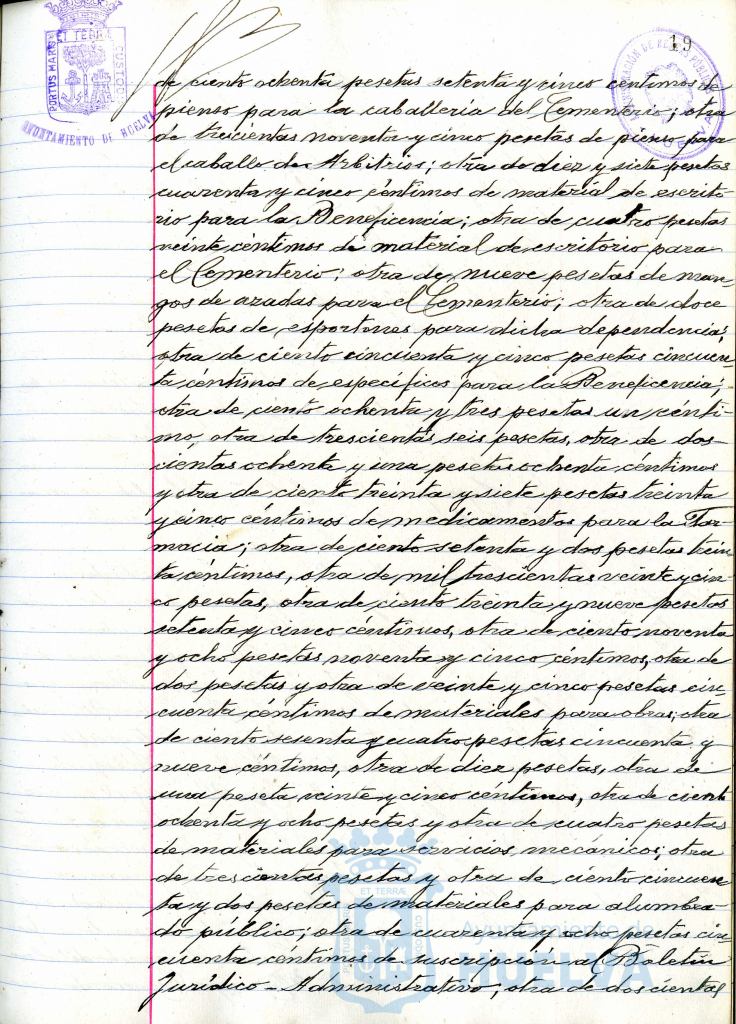 19
PORTUS MARIS ET TERRÆ CUSTODIA
AYUNTAMIENTO DE HUELVA
HUELVA
de ciento ochenta pesetas setenta y cinco centimos de
pienso para la caballería del Cementerio; otra
de trescientas noventa y cinco pesetas de pienso para
el caballo de Arbitrios; otra de diez y siete pesetas
cuarenta y cinco céntimos de material de escrito
rio para la Beneficencia; otra de cuatro pesetas
veinte céntimos de material de escritorio para
el Cementerio; otra de nueve pesetas de man-
gos de azadas para el Cementerio; otra de doce
pesetas de esportones para dicha dependencia;
otra de ciento cincuenta y cinco pesetas cincuen-
ta céntimos de específicos para la Beneficencia;
otra de ciento ochenta y tres pesetas un cénti-
mo, otra de trescientas seis pesetas, otra de dos-
cientas ochenta y una pesetas ochenta céntimos
y otra de ciento treinta y siete pesetas treinta
y cinco céntimos de medicamentos para la Far-
macia; otra de ciento setenta y dos pesetas trein
ta céntimos, otra de mil trescientas veinte y cin-
co pesetas, otra de ciento treinta y nueve pesetas
setenta y cinco céntimos, otra de ciento noventa
y ocho pesetas noventa y cinco céntimos, otra de
dos pesetas y otra de veinte y cinco pesetas cin-
cuenta céntimos de materiales para obras; otra
de ciento sesenta y cuatro pesetas cincuenta y
nueve céntimos, otra de diez pesetas, otra de
una peseta veinte y cinco céntimos, otra de ciento
ochenta y ocho pesetas y otra de cuatro pesetas
de materiales para servicios mecánicos; otra
de trescientas pesetas y otra de ciento cincuen-
ta y dos pesetas de materiales para alumbra-
do público; otra de cuarenta y ocho pesetas cin-
cuenta céntimos de suscripción al Boletín
Jurídico-Administrativo; otra de doscientas
Ayuntamiento de
HUELVA